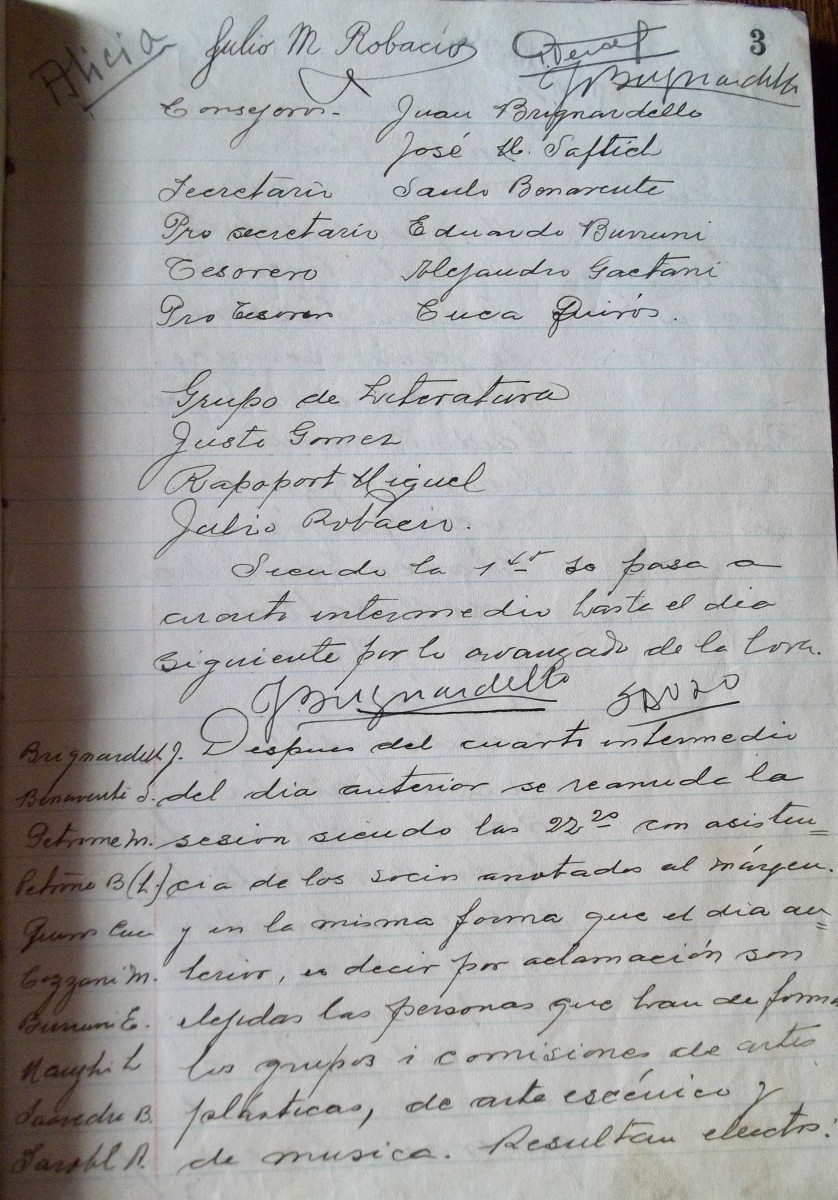 3
Alicia Julio M Robacio
JBrignardello
Consejeros - Juan Brignardello
José M. Saftich
Secretario Saulo Benavente
Pro secretario Eduardo Burruni
Tesorero Alejandro Gaetani
Pro Tesorero Cuca Quirós.
Grupo de Literatura
Justo Gomez
Rapoport Miguel
Julio Robacio.
Siendo la 1 se pasa a
cuarto intermedio hasta el dia
siguiente por lo avanzado de la hora.
JBrignardello
Brignardello J. Despues del cuarto intermedio
Benavente S. del dia anterior se reanuda la
Petrone M. sesion siendo las 22 20 con asisten=
Petrone B (h) cia de los socios anotados al márgen.
Quiros Cuca y en la misma forma que el día an=
Cozzani M. terior, es decir por aclamación son
Burruni E. elejidas las personas que han de formar
L los grupos i comisiones de artes
Saavedra B. plásticas, de arte escénico y
R. de musica. Resultan electos: